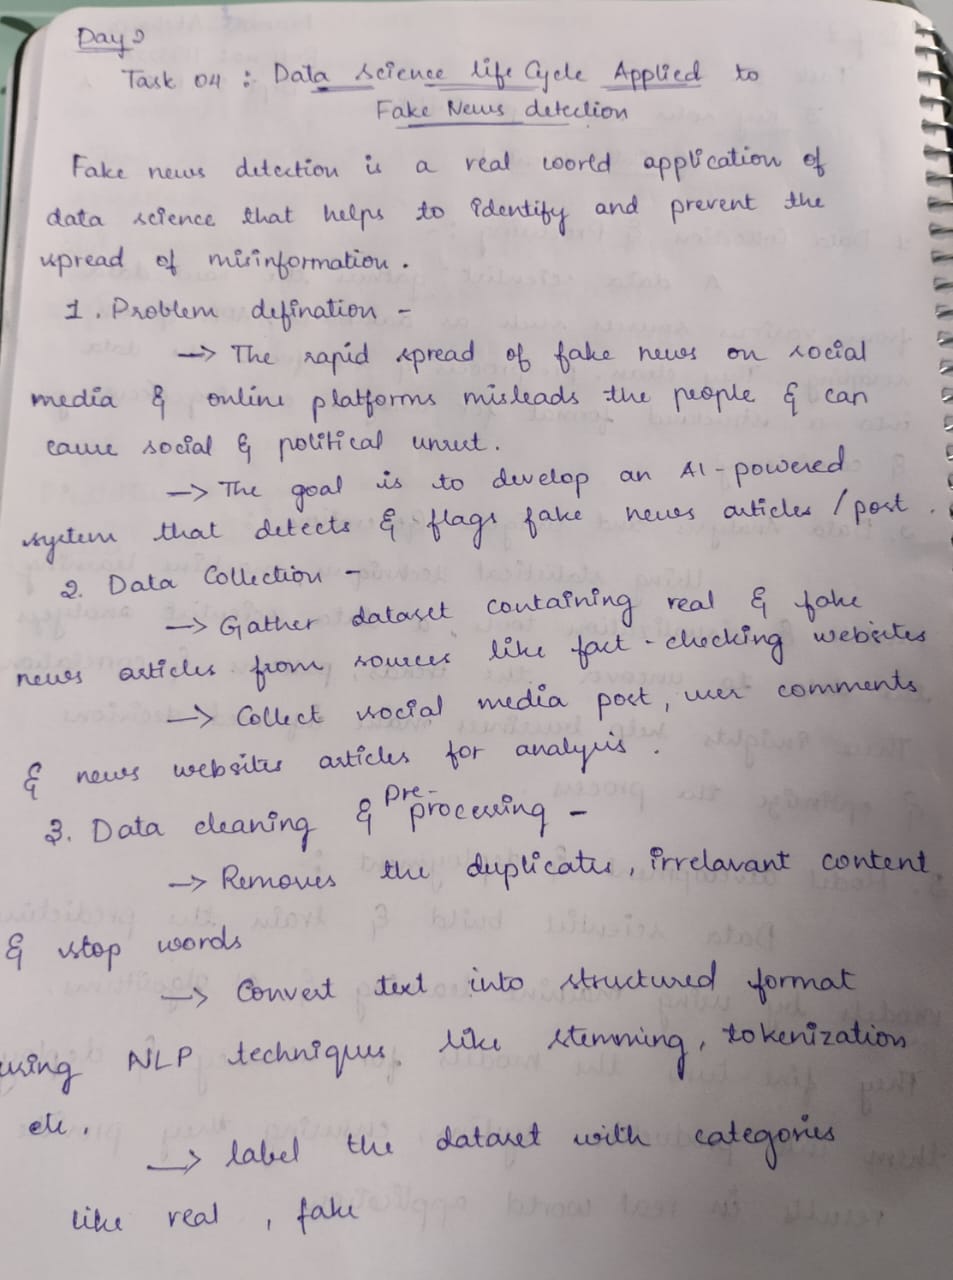 Day 2
Task 04 : Data science life Cycle Applied to
Fake News detection
Fake news detection is a real world application of
data science that helps to identify and prevent the
spread of misinformation.
1. Problem defination -
→ The rapid spread of fake news on social
media & online platforms misleads the people & can
cause social & political unrest.
→ The goal is to develop an AI-powered
system that detects & flags fake news articles / post.
2. Data Collection -
→ Gather dataset containing real & fake
news articles from sources like fact-checking websites
→ Collect social media post, user comments
& news websites articles for analysis.
3. Data cleaning & pre-processing -
→ Removes the duplicates, irrelavant content
& stop words
→ Convert text into structured format
using NLP techniques like stemming, tokenization
etc.
→ label the dataset with categories
like real, fake